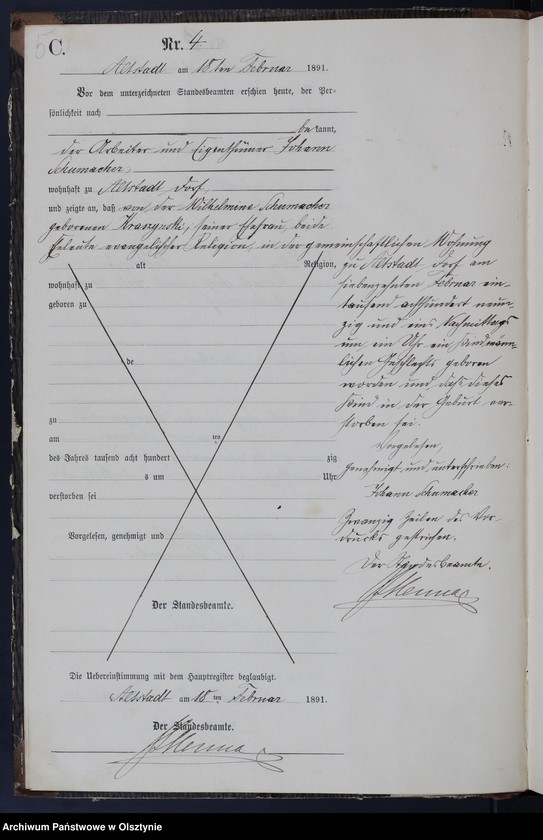 C.
Nr. 4.
Altstadt am 18ten Februar 1891.
Vor dem unterzeichneten Standesbeamten erschien heute, der Per-
sönlichkeit nach
be kannt,
der Arbeiter und Eigenthümer Johann
Schumacher,
wohnhaft zu Altstadt Dorf,
und zeigte an, daß von der Wilhelmine Schumacher
geborenen, seiner Ehefrau, beide
Eheleute evangelischer Religion, in der gemeinschaftlichen Wohnung
alt Religion,
wohnhaft zu
geboren zu
de
zu
am ten
des Jahres tausend acht hundert zig
s um Uhr
verstorben sei
Vorgelesen, genehmigt und
Der Standesbeamte.
zu Altstadt Dorf am
siebenzehnten Februar ein-
tausend achthundert neun-
zig und eins Nachmittags
um ein Uhr ein Kind männ-
lichen Geschlechts geboren
worden und daß dieses
Kind in der Geburt ver-
storben sei.
Vorgelesen,
genehmigt und unterschrieben:
Johann Schumacher
Zwanzig Zeilen des Vor-
drucks gestrichen.
Der Standesbeamte.
Die Uebereinstimmung mit dem Hauptregister beglaubigt.
Altstadt am 18 ten Februar 1891.
Der Standesbeamte.
Archiwum Państwowe w Olsztynie